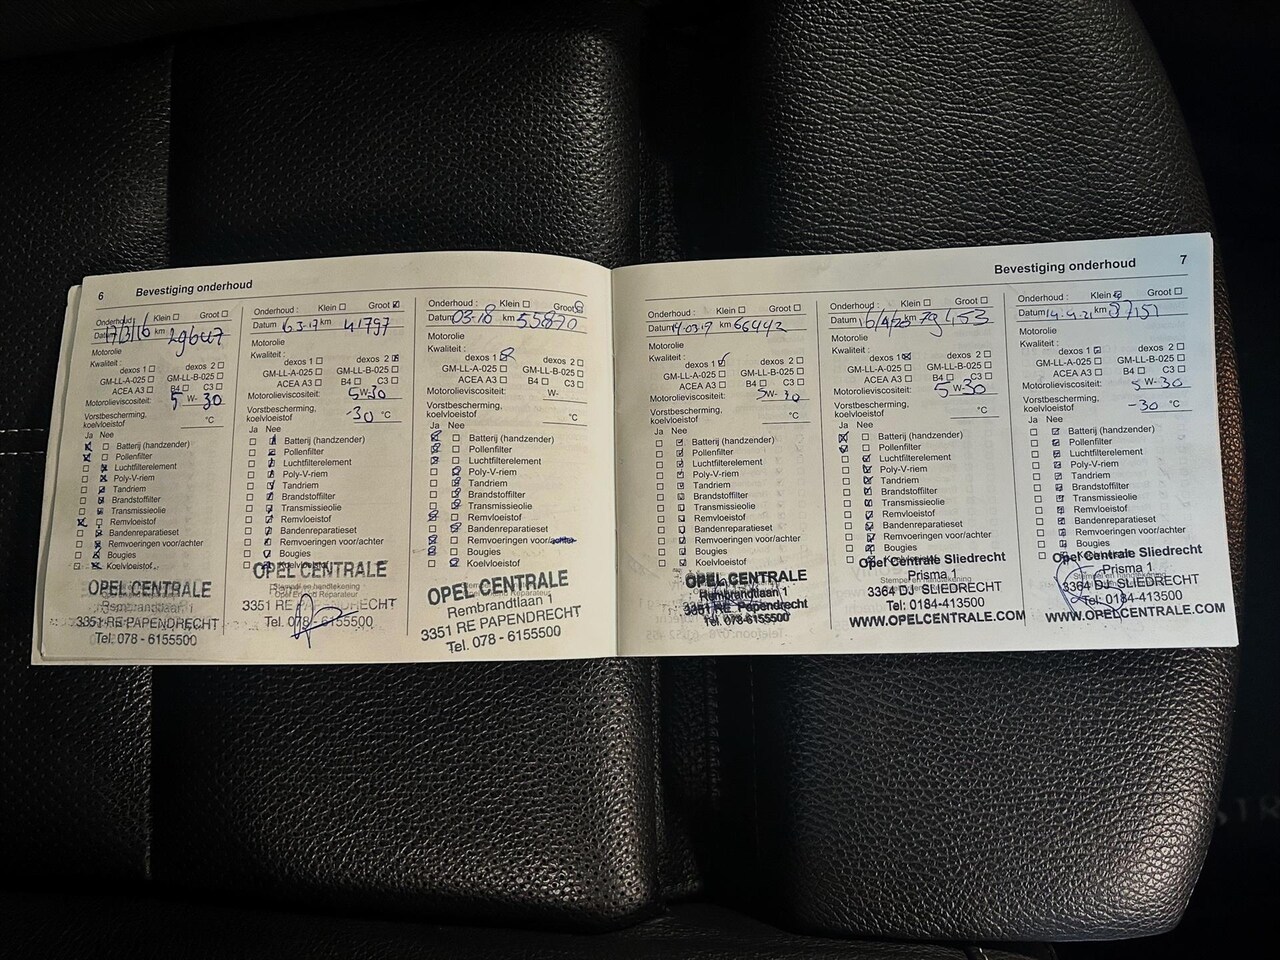 6 Bevestiging onderhoud
Onderhoud : Klein ☐ Groot ☐
Datum 17/3/16 km 29647
Motorolie
Kwaliteit :
dexos 1 ☐ dexos 2 ☐
GM-LL-A-025 ☐ GM-LL-B-025 ☐
ACEA A3 ☐ B4 ☐ C3 ☐
Motorolieviscositeit: 5 W- 30
Vorstbescherming,
koelvloeistof °C
Ja Nee
Batterij (handzender)
Pollenfilter
Luchtfilterelement
Poly-V-riem
Tandriem
Brandstoffilter
Transmissieolie
Remvloeistof
Bandenreparatieset
Remvoeringen voor/achter
Bougies
Koelvloeistof
OPEL CENTRALE
Rembrandtlaan 1
3351 RE PAPENDRECHT
Tel. 078 - 6155500
Onderhoud : Klein ☐ Groot ☑
Datum 6-3-17 km 41797
Motorolie
Kwaliteit :
dexos 1 ☐ dexos 2 ☒
GM-LL-A-025 ☐ GM-LL-B-025 ☐
ACEA A3 ☐ B4 ☐ C3 ☐
Motorolieviscositeit: 5W-30
Vorstbescherming,
koelvloeistof -30 °C
Ja Nee
Batterij (handzender)
Pollenfilter
Luchtfilterelement
Poly-V-riem
Tandriem
Brandstoffilter
Transmissieolie
Remvloeistof
Bandenreparatieset
Remvoeringen voor/achter
Bougies
Koelvloeistof
OPEL CENTRALE
3351 RE PAPENDRECHT
Tel. 078 - 6155500
Onderhoud : Klein ☐ Groot ☒
Datum 03-18 km 55870
Motorolie
Kwaliteit :
dexos 1 ☒ dexos 2 ☐
GM-LL-A-025 ☐ GM-LL-B-025 ☐
ACEA A3 ☐ B4 ☐ C3 ☐
Motorolieviscositeit: W-
Vorstbescherming,
koelvloeistof °C
Ja Nee
Batterij (handzender)
Pollenfilter
Luchtfilterelement
Poly-V-riem
Tandriem
Brandstoffilter
Transmissieolie
Remvloeistof
Bandenreparatieset
Remvoeringen voor/achter
Bougies
Koelvloeistof
OPEL CENTRALE
Rembrandtlaan 1
3351 RE PAPENDRECHT
Tel. 078 - 6155500
Bevestiging onderhoud 7
Onderhoud : Klein ☐ Groot ☐
Datum 14-03-19 km 66442
Motorolie
Kwaliteit :
dexos 1 ☑ dexos 2 ☐
GM-LL-A-025 ☐ GM-LL-B-025 ☐
ACEA A3 ☐ B4 ☐ C3 ☐
Motorolieviscositeit: 5W- 30
Vorstbescherming,
koelvloeistof °C
Ja Nee
Batterij (handzender)
Pollenfilter
Luchtfilterelement
Poly-V-riem
Tandriem
Brandstoffilter
Transmissieolie
Remvloeistof
Bandenreparatieset
Remvoeringen voor/achter
Bougies
Koelvloeistof
OPEL CENTRALE
Rembrandtlaan 1
3351 RE Papendrecht
Tel. 078-6155500
Onderhoud : Klein ☐ Groot ☐
Datum km 79453
Motorolie
Kwaliteit :
dexos 1 ☒ dexos 2 ☐
GM-LL-A-025 ☐ GM-LL-B-025 ☐
ACEA A3 ☐ B4 ☐ C3 ☐
Motorolieviscositeit: 5 W-30
Vorstbescherming,
koelvloeistof °C
Ja Nee
Batterij (handzender)
Pollenfilter
Luchtfilterelement
Poly-V-riem
Tandriem
Brandstoffilter
Transmissieolie
Remvloeistof
Bandenreparatieset
Remvoeringen voor/achter
Bougies
Koelvloeistof
Opel Centrale Sliedrecht
Prisma 1
3364 DJ SLIEDRECHT
Tel: 0184-413500
WWW.OPELCENTRALE.COM
Onderhoud : Klein ☑ Groot ☐
Datum 14-4-21 km 87151
Motorolie
Kwaliteit :
dexos 1 ☑ dexos 2 ☐
GM-LL-A-025 ☐ GM-LL-B-025 ☐
ACEA A3 ☐ B4 ☐ C3 ☐
Motorolieviscositeit: 5 W- 30
Vorstbescherming,
koelvloeistof -30 °C
Ja Nee
Batterij (handzender)
Pollenfilter
Luchtfilterelement
Poly-V-riem
Tandriem
Brandstoffilter
Transmissieolie
Remvloeistof
Bandenreparatieset
Remvoeringen voor/achter
Bougies
Koelvloeistof
Opel Centrale Sliedrecht
Prisma 1
3364 DJ SLIEDRECHT
Tel: 0184-413500
WWW.OPELCENTRALE.COM